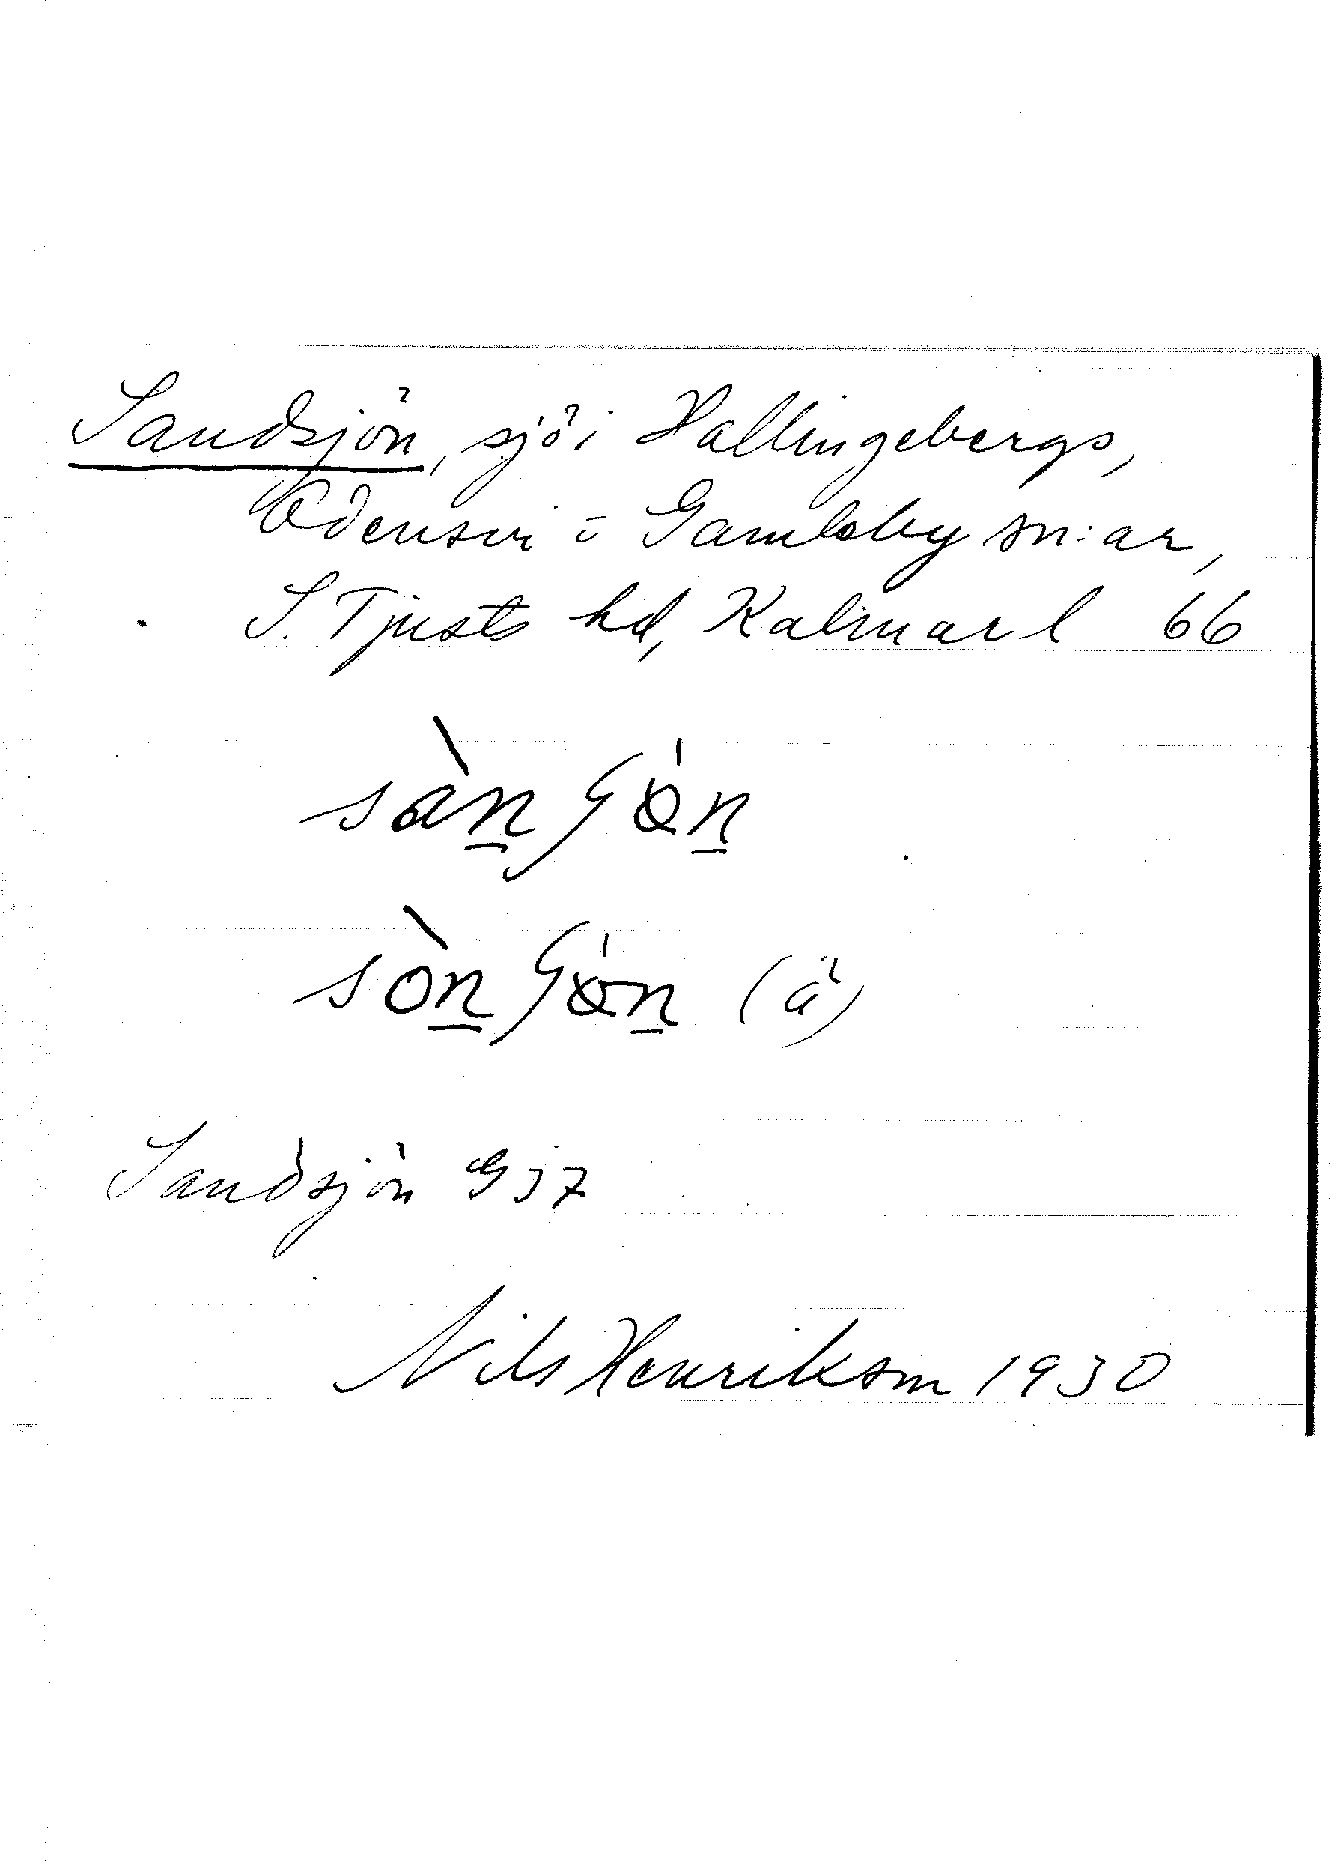 Sandsjön, sjö i Hallingebergs,
Odensvi o Gamleby sn:ar,
S. Tjusts hd, Kalmar l 66
(ä)
Sandsjön G 37
Nils Henrikson 1930